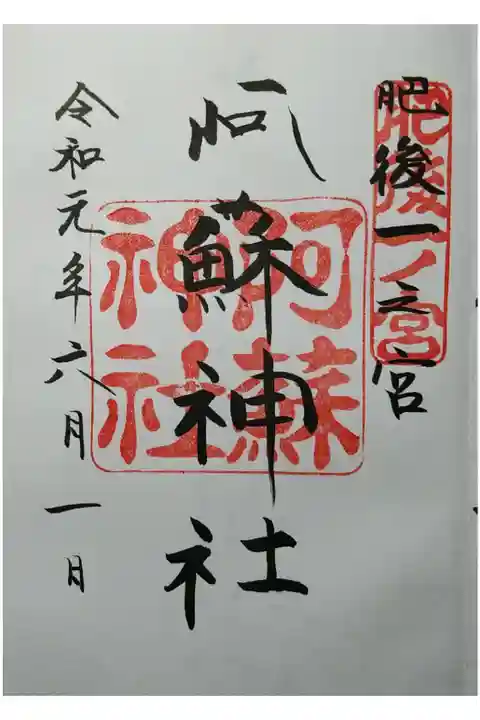 肥後一之宮
肥後一ノ宮
阿蘇神社
阿蘇神社
令和元年六月一日